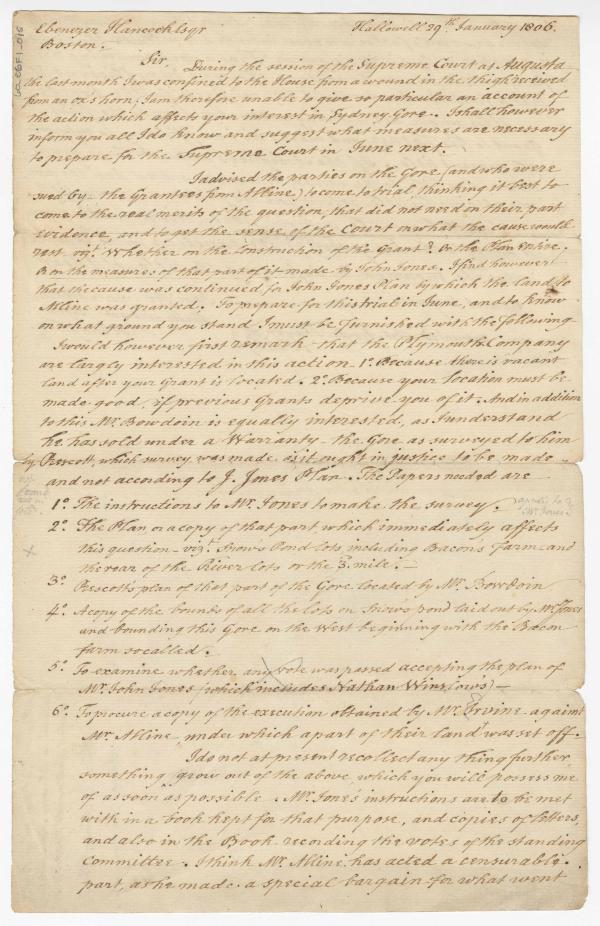 Ebenezer Hancock Esqr
Hallowell 29th January 1806.
Boston.
Sir,
During the session of the Supreme Court at Augusta
the last month I was confined to the House from a wound in the thigh received
from an ox's horn; I am therefore unable to give so particular an account of
the action which affects your interest in Sydney Gore. I shall however
inform you all I do know and suggest what measures are necessary
to prepare for the Supreme Court in June next.
I advised the parties on the Gore (and who were
sued by the Grantees from Alline) to come to trial, thinking it best to
come to the real merits of the question, that did not need on their part
evidence, and to get the sense of the Court on what the cause would
rest viz. Whether on the Construction of the Grant? On the Plan entire.
Or on the measures of that part of it made by John Jones. I find however
that the cause was continued for John Jones Plan by which the land to
Alline was granted. To prepare for this trial in June, and to know
on what ground you stand I must be furnished with the following
I would however first remark that the Plymouth Company
are largly interested in this action 1o. Because there is vacant
land after your Grant is located. 2o Because your location must be
made good, if previous Grants deprive you of it. And in addition
to this Mr. Bowdoin is equally interested, as I understand
he has sold under a Warranty the Gore as surveyed to him
by Prescott, which survey was made as it ought in justice to be made
and not according to J. Jones Plan. The Papers needed are
1o. The instructions to Mr. Jones to make the survey.
2o. The Plan or a copy of that part which immediately affects
this question viz. Snows Pond lots, including Bacon's Farm and
the rear of the River lots or the 3 mile.
3o. Prescott's plan of that part of the Gore located by Mr. Bowdoin
4o. A copy of the bounds of all the lots on Snows pond laid out by Mr. Jones
and bounding this Gore on the West beginning with the Bacon
farm so called.
5o. To examine whether any vote was passed accepting the plan of
Mr. John Jones (which includes Nathan Winslow's)
6o. To procure a copy of the execution obtained by Mr. Ervine against
Mr. Alline, under which a part of their land was set off.
I do not at present recollect any thing further
something grow out of the above, which you will possess me
of as soon as possible. Mr. Jone's instructions are to be met
with in a book kept for that purpose, and copies of letters,
and also in the Book recording the votes of the standing
Committee. I think Mr. Alline, has acted a censurable
part, as he made a special bargain for what went